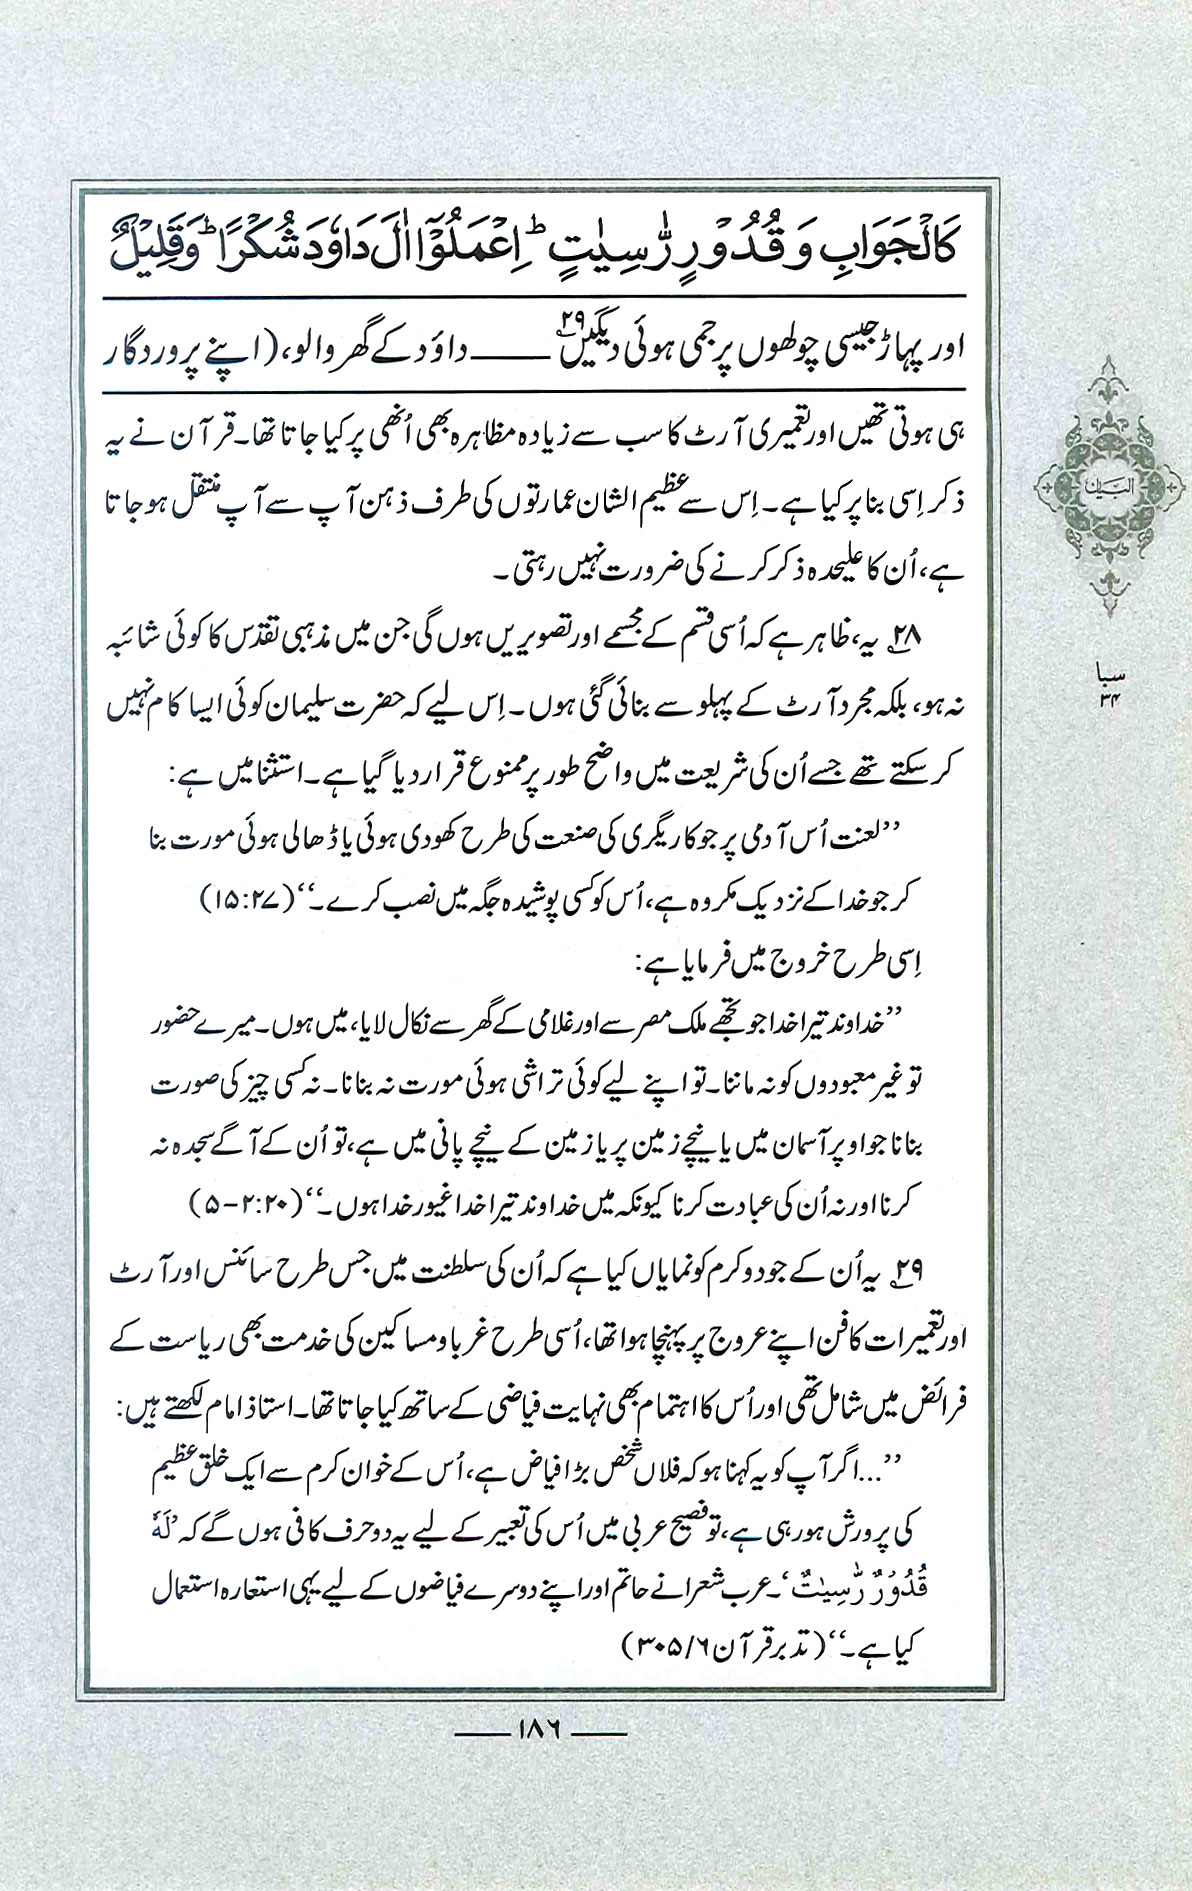 كَالْجَوَابِ وَقُدُوْرٍ رّٰسِيٰتٍ ؕ اِعْمَلُوْۤا اٰلَ دَاوٗدَ شُكْرًا ؕ وَقَلِيْلٌ
اور پہاڑ جیسی چولھوں پر جمی ہوئی دیگیں۲۹ ــــــ داؤد کے گھر والو، (اپنے پروردگار
ہی ہوتی تھیں اور تعمیری آرٹ کا سب سے زیادہ مظاہرہ بھی اُنھی پر کیا جاتا تھا۔ قرآن نے یہ
ذکر اِسی بنا پر کیا ہے۔ اِس سے عظیم الشان عمارتوں کی طرف ذہن آپ سے آپ منتقل ہو جاتا
ہے، اُن کا علیحدہ ذکر کرنے کی ضرورت نہیں رہتی۔
۲۸؎ یہ، ظاہر ہے کہ اُسی قسم کے مجسمے اور تصویریں ہوں گی جن میں مذہبی تقدس کا کوئی شائبہ
نہ ہو، بلکہ مجرد آرٹ کے پہلو سے بنائی گئی ہوں۔ اِس لیے کہ حضرت سلیمان کوئی ایسا کام نہیں
کر سکتے تھے جسے اُن کی شریعت میں واضح طور پر ممنوع قرار دیا گیا ہے۔ استثنا میں ہے:
’’لعنت اُس آدمی پر جو کاریگری کی صنعت کی طرح کھودی ہوئی یا ڈھالی ہوئی مورت بنا
کر جو خدا کے نزدیک مکروہ ہے، اُس کو کسی پوشیدہ جگہ میں نصب کرے۔‘‘ (۲۷:۱۵)
اِسی طرح خروج میں فرمایا ہے:
’’خداوند تیرا خدا جو تجھے ملک مصر سے اور غلامی کے گھر سے نکال لایا، میں ہوں۔ میرے حضور
تو غیر معبودوں کو نہ ماننا۔ تو اپنے لیے کوئی تراشی ہوئی مورت نہ بنانا۔ نہ کسی چیز کی صورت
بنانا جو اوپر آسمان میں یا نیچے زمین پر یا زمین کے نیچے پانی میں ہے، تو اُن کے آگے سجدہ نہ
کرنا اور نہ اُن کی عبادت کرنا کیونکہ میں خداوند تیرا خدا غیور خدا ہوں۔‘‘ (۲۰:۲-۵)
۲۹؎ یہ اُن کے جود و کرم کو نمایاں کیا ہے کہ اُن کی سلطنت میں جس طرح سائنس اور آرٹ
اور تعمیرات کا فن اپنے عروج پر پہنچا ہوا تھا، اُسی طرح غربا و مساکین کی خدمت بھی ریاست کے
فرائض میں شامل تھی اور اُس کا اہتمام بھی نہایت فیاضی کے ساتھ کیا جاتا تھا۔ استاذ امام لکھتے ہیں:
’’...اگر آپ کو یہ کہنا ہو کہ فلاں شخص بڑا فیاض ہے، اُس کے خوان کرم سے ایک خلق عظیم
کی پرورش ہو رہی ہے، تو فصیح عربی میں اُس کی تعبیر کے لیے یہ دو حرف کافی ہوں گے کہ ’لَهٗ
قُدُوْرٌ رّٰسِيٰتٌ‘۔ عرب شعرا نے حاتم اور اپنے دوسرے فیاضوں کے لیے یہی استعارہ استعمال
کیا ہے۔‘‘ (تدبر قرآن ۶/ ۳۰۵)
البیان
سبا
۳۴
۱۸۶